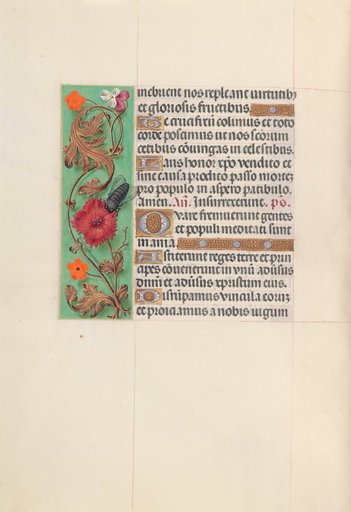 inebrient nos repleant virtutibȝ
et gloriosis fructibus.
Te crucifixū colimus et toto
corde poscimus ut nos sc̄orum
cetibus cōiungas in celestibus.
Laus honor xp̄o vendito et
sine causa prodito passo mortez
pro populo in aspero patibulo.
Amen. An̄. Insurrexerunt. ps̄.
Quare fremuerunt gentes
et populi meditati sunt
inania.
Astiterunt reges terre et prin
cipes cōuenerunt in vnū aduersus
dn̄m et aduersus xpristum eius.
Disrūpamus vincula eorum
et proiciamus a nobis iugum